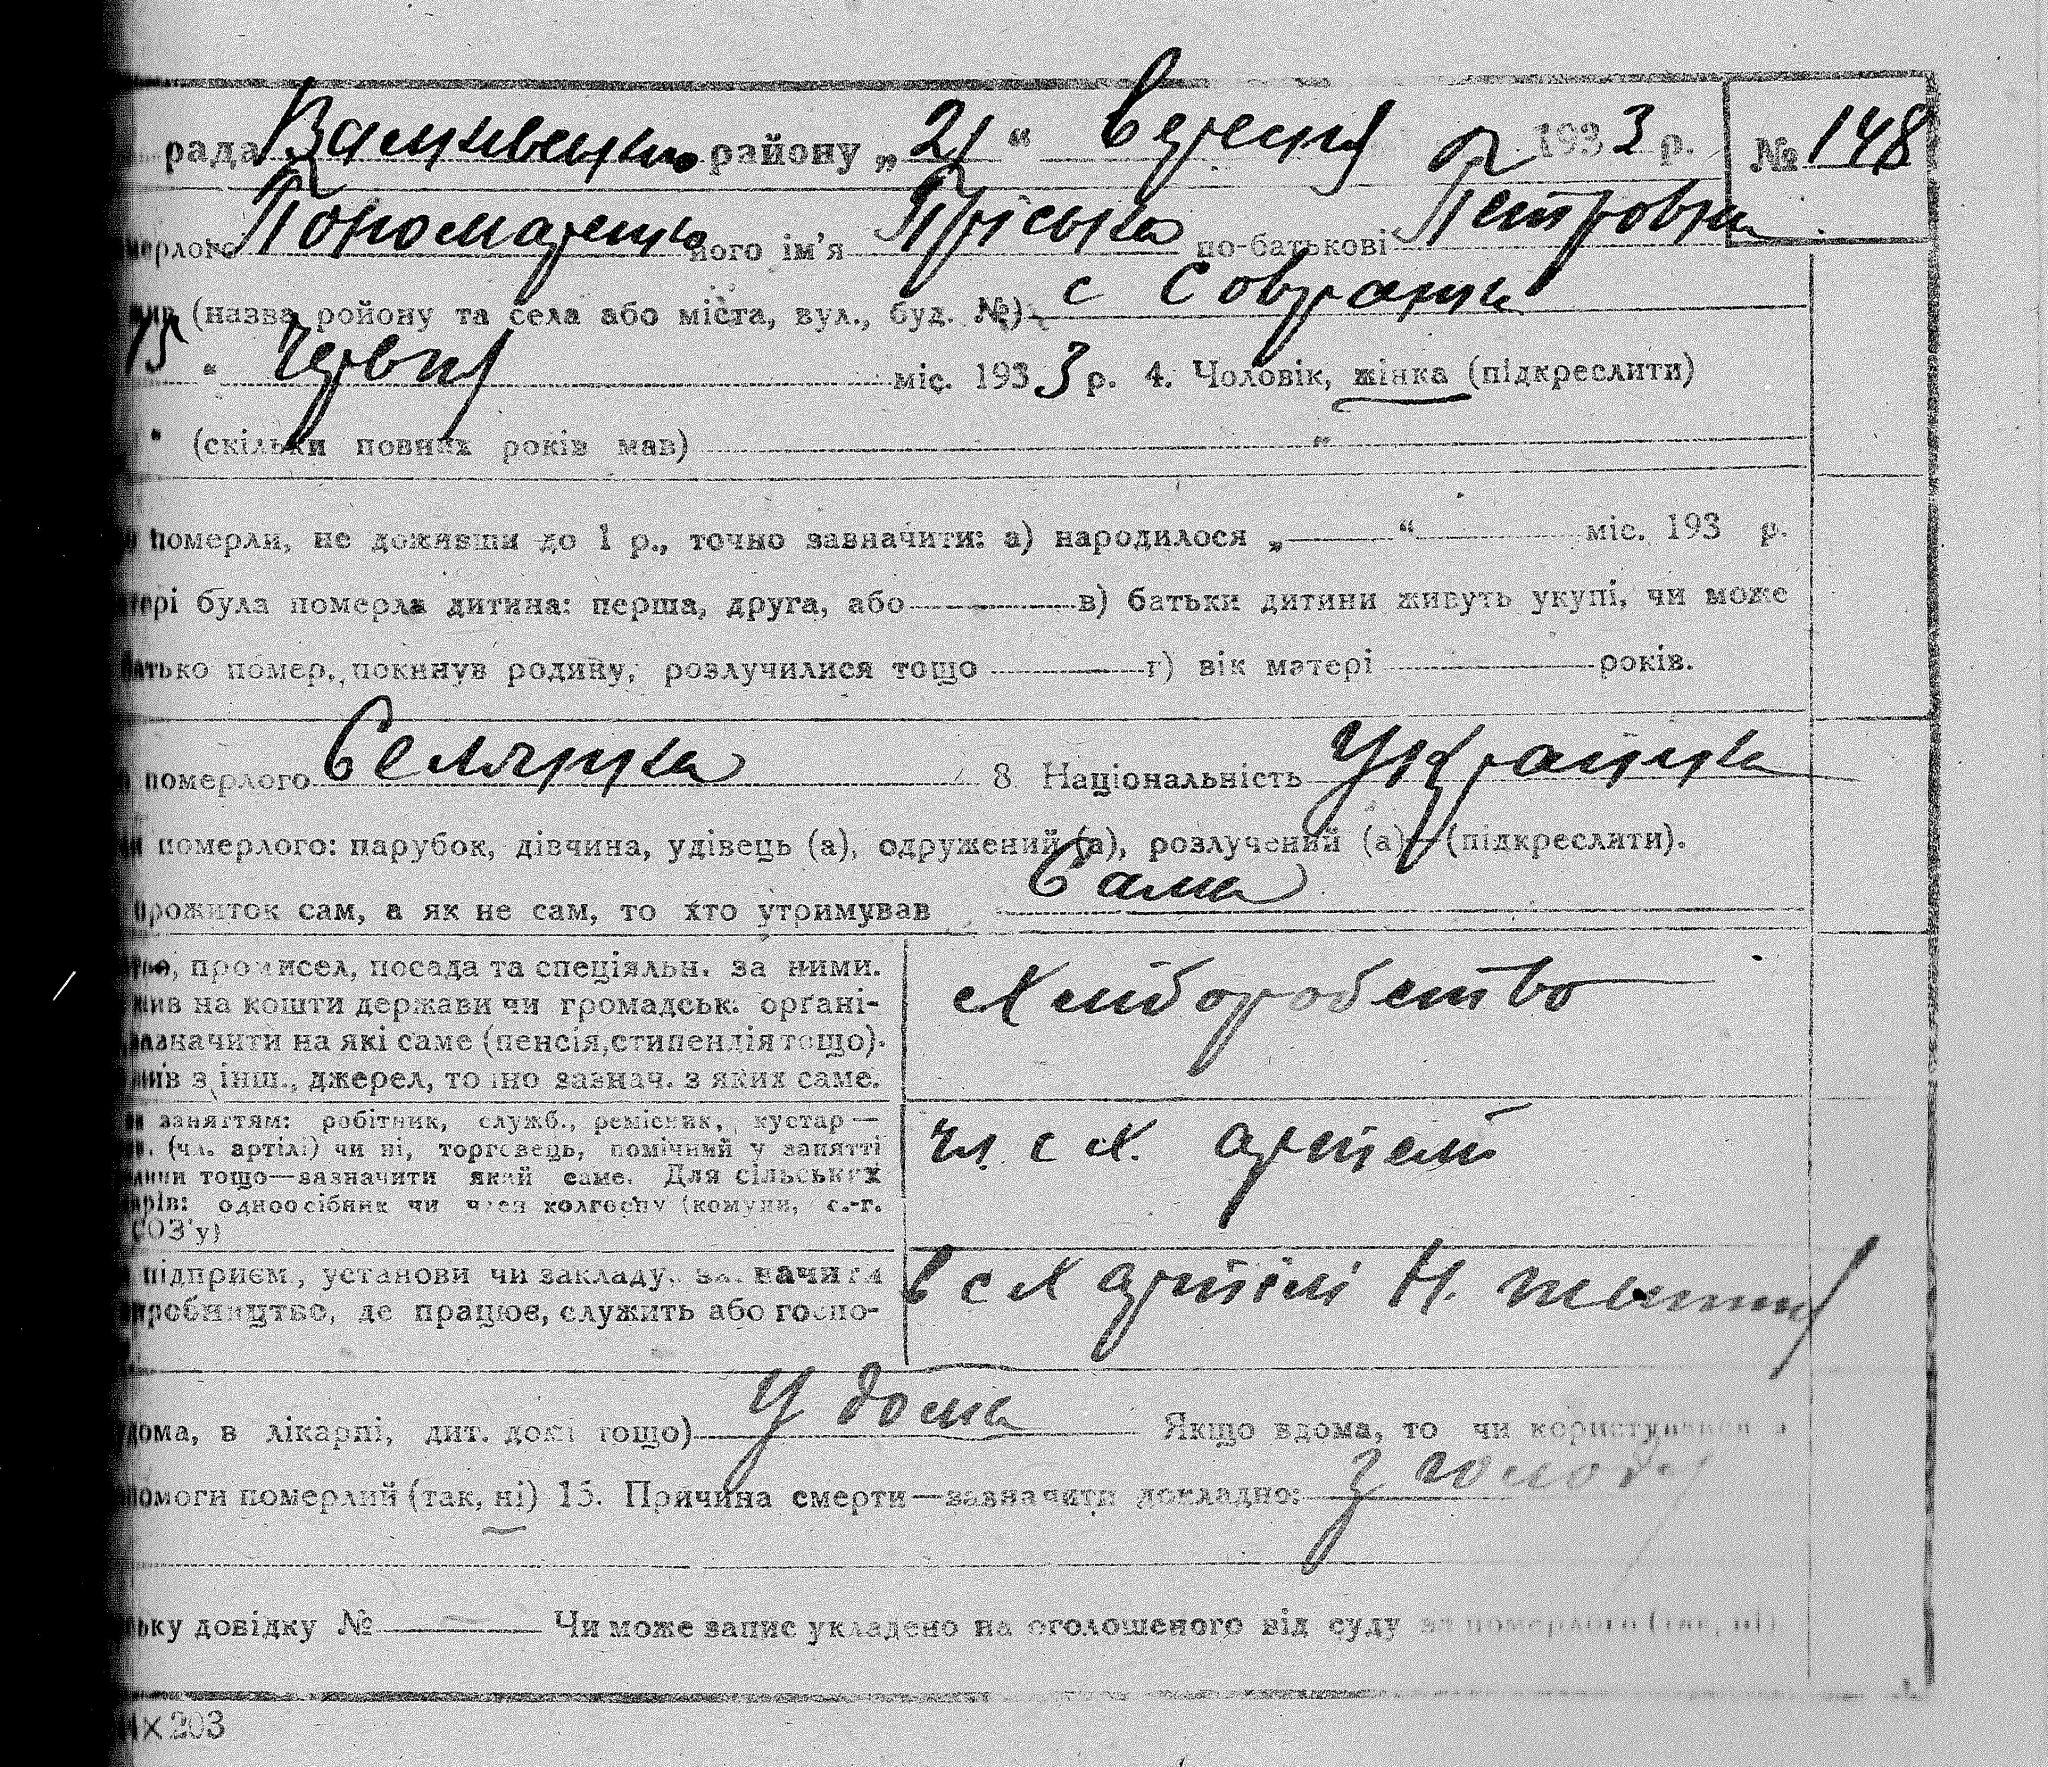 рада Валківецького району „21“ вересня 1933 р. № 148
мерлого Пономаренко його ім'я Пріська по-батькові Петровна
(назва ройону та села або міста, вул., буд. №) с Говрани
15 “ червня міс. 1933 р. 4. Чоловік, жінка (підкреслити)
“ (скільки повних років мав) "
померли, не доживши до 1 р., точно зазначити: а) народилося „ “ міс. 193 р.
тері була померла дитина: перша, друга, або в) батьки дитини живуть укупі, чи може
батько помер, покинув родину, розлучилися тощо г) вік матері років.
померлого Селянка 8 Національність Украінка
померлого: парубок, дівчина, удівець (а), одружений (а), розлучений (а)—(підкреслити).
прожиток сам, а як не сам, то хто утримував Сама
тво, промисел, посада та спеціяльн. за ними.
жив на кошти держави чи громадськ. органі-
зазначити на які саме (пенсія, стипендія тощо).
жив з інш., джерел, точно зазнач. з яких саме.
Хліборобство
заняттям: робітник, служб., ремісник, кустар —
(чл. артілі) чи ні, торговець, помічний у занятті
дини тощо—зазначити який саме. Для сільських
арів: одноосібник чи член колгоспу (комуни, с.-г.
СОЗ'у)
чл. с х. артелі
підприєм, установи чи закладу, зазначити
виробництво, де працює, служить або госпо-
в с х артілі Н. життя
вдома, в лікарні, дит. домі тощо) У дома Якщо вдома, то чи користувався
помоги померлий (так, ні) 15. Причина смерти—зазначити докладно: з голоду
ську довідку № Чи може запис укладено на оголошеного від суду за померлого (так, ні)
×203